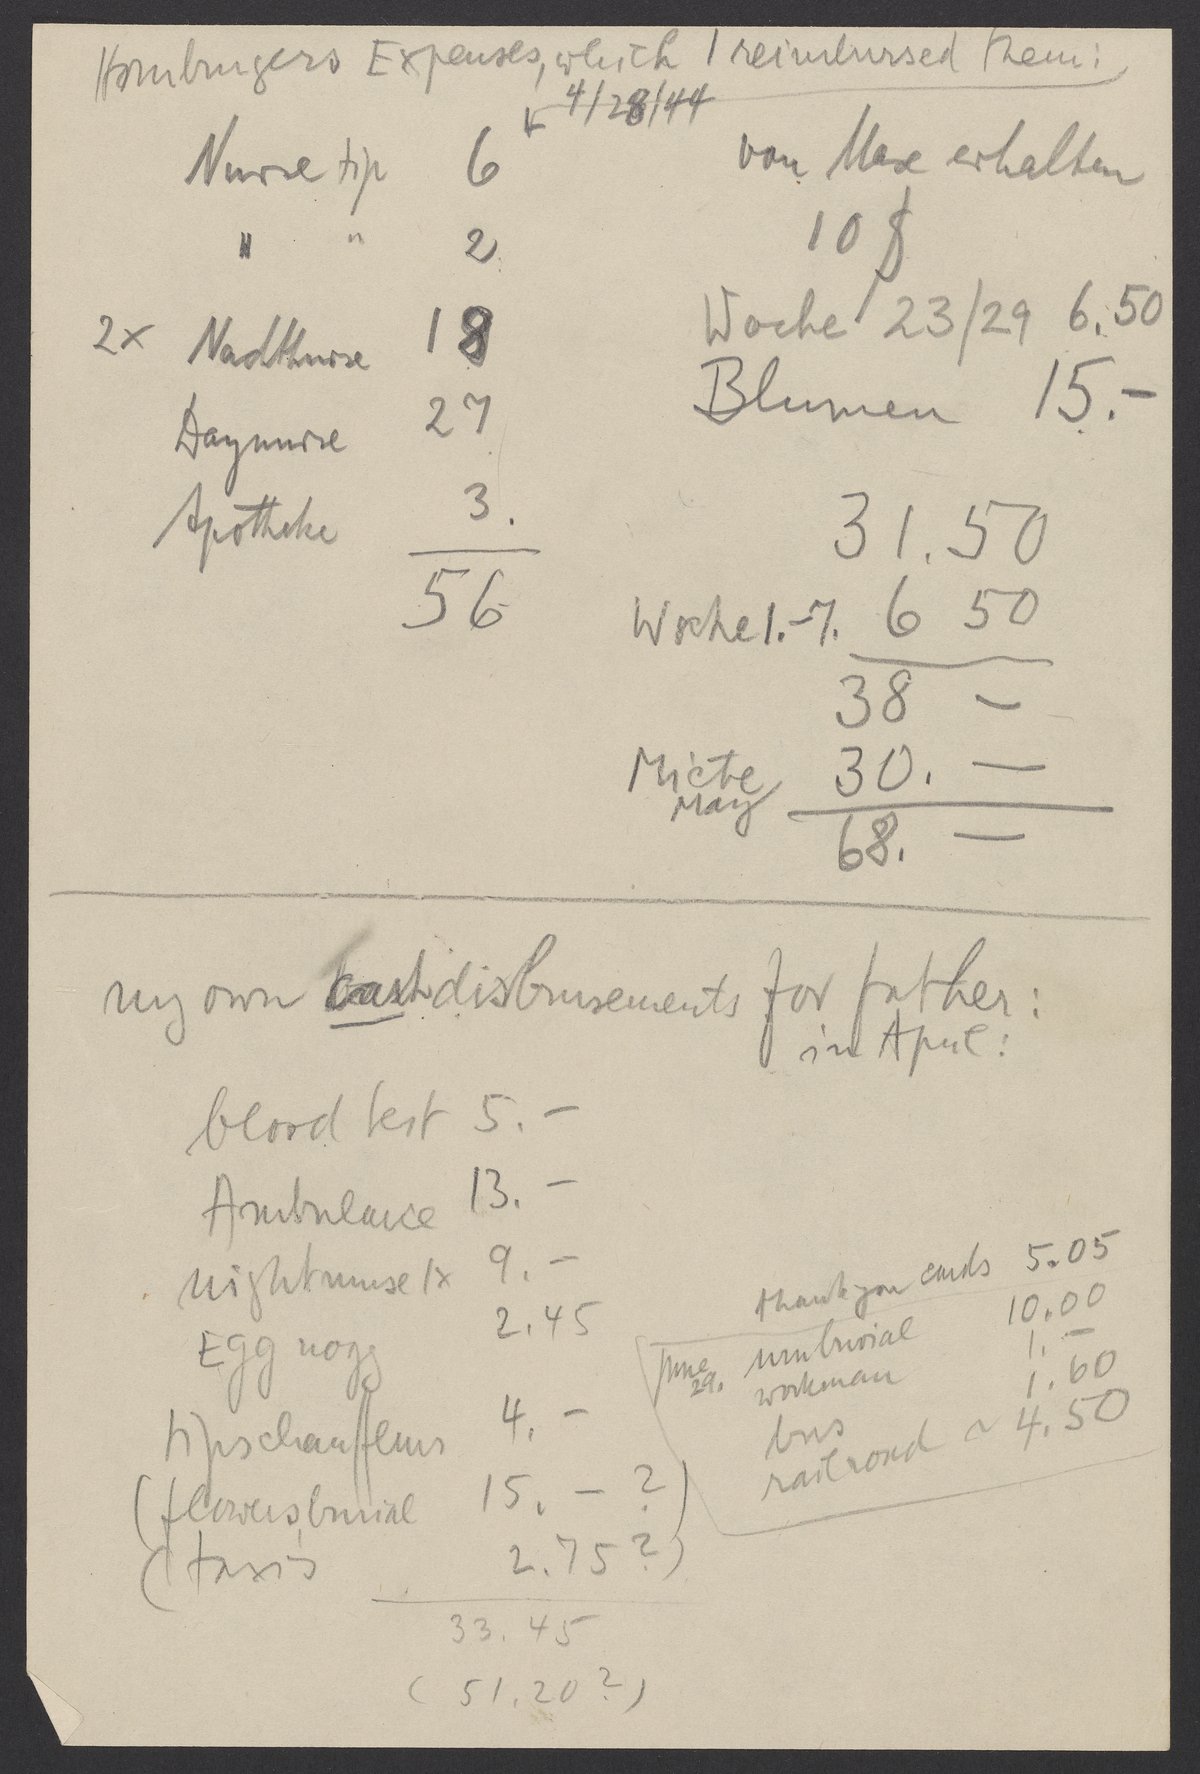 Homburgers Expenses, which I reimbursed them:
4/28/44
Nurse tip 6
" " 2
2x Nachtnurse 18
Daynurse 27
Apotheke 3.
56
von Max erhalten
10 $
Woche 23/29 6.50
Blumen 15.-
31.50
Woche 1.-7. 6 50
38 -
Miete May 30. -
68. -
my own cash disbursements for father:
in April:
blood test 5. -
Ambulance 13. -
nightnurse 1x 9. -
Egg nogg 2.45
tips chauffeurs 4. -
(flowers, burial 15. - ?)
(taxis 2.75 ?)
33.45
(51.20 ?)
thank you cards 5.05
June 29. urn burial 10.00
workman 1. -
bus 1.60
railroad ~ 4.50